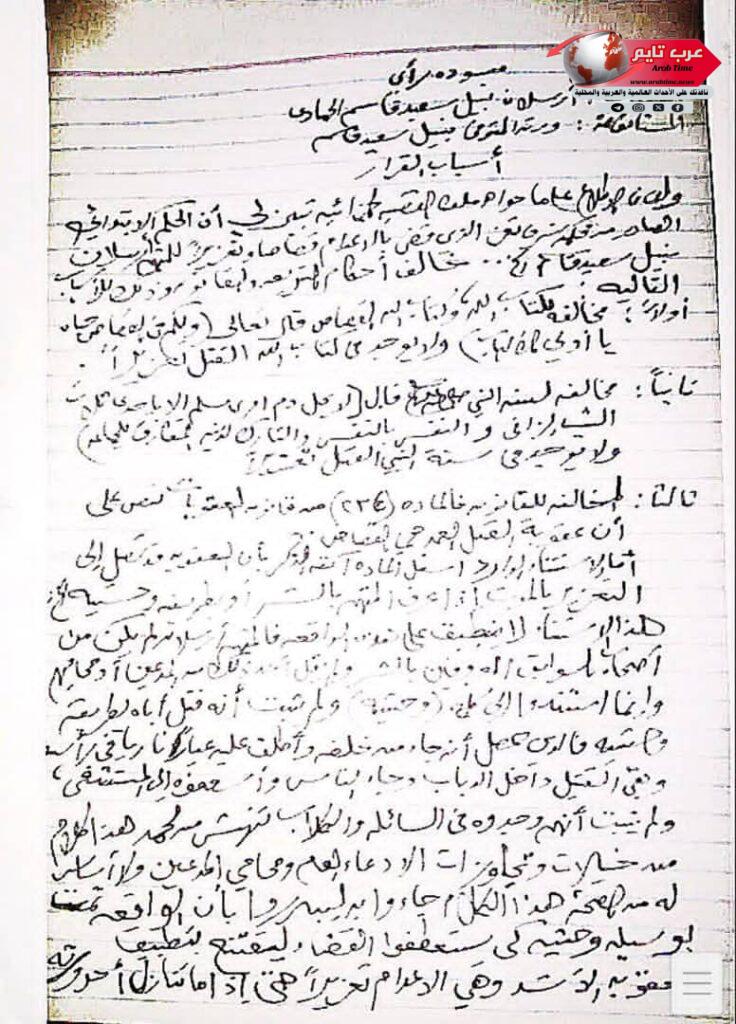 عرب تايم
Arab Time
www.arabtime.news
نافذتك على الأحداث العالمية والعربية والمحلية
مسوده برأي
أرسلان نبيل سعيد قاسم الحمادي
المستأنفة: ورثة المتوفي نبيل سعيد قاسم
أسباب القرار
وبعد الإطلاع على ما حواه ملف القضية الجنائية تبين لي أن الحكم الابتدائي
الصادر من محكمة شرق تعز الذي قضى بالإعدام قصاصا وتعزيراً للمتهم أرسلان
نبيل سعيد قاسم الخ... خالف أحكام الشريعة والقانون وذلك للأسباب
التاليه:
أولاً: مخالفة لكتاب الله وكتاب الله القصاص قال تعالى (ولكم في القصاص حياة
يا أولي الألباب) ولا يوجد في كتاب الله القتل تعزيراً.
ثانياً: مخالفه لسنه النبي قال (لا يحل دم امرئ مسلم إلا بإحدى ثلاث
الثيب الزاني والنفس بالنفس والتارك لدينه المفارق للجماعة)
ولا يوجد في سنة النبي القتل تعزيراً
ثالثاً: المخالفه للقانون فالماده (٢٣٤) من قانون العقوبات تنص على
أن عقوبة القتل العمد هي القصاص
أما الاستثناء الوارد أسفل المادة آنفة الذكر بأن العقوبه قد تصل إلى
التعزير بالموت إذا عرف المتهم بالشر أو بطريقه وحشيه الخ
هذا الاستثناء لا ينطبق على هذه الواقعه فالمتهم أرسلان لم يكن من
أصحاب السوابق المعروفين بالشر ولم يقل أحد ذلك من المدعين أو محاميهم
وإنما استندوا إلى كلمة (وحشية) ولم يثبت أنه قتل أباه بطريقة
وحشيه فالذي حصل أنه جاء من خلفه وأطلق عليه عياراً نارياً في رأسه
وبقي القتيل داخل الدباب وجاء الناس وأسعفوه إلى المستشفى،
ولم يثبت أنهم وجدوه في السائله والكلاب تنهش من لحمه هذا الكلام
من خيالات وتجاوزات الادعاء العام ومحامي المدعين ولا أساس
له من الصحة هذا الكلام جاءوا به ليبرروا بأن الواقعه تمت
بوسيله وحشيه كي يستعطفوا القضاء ليقتنع بتطبيق
عقوبه الأشد وهي الاعدام تعزيراً حتى إذا ما تنازل أحد ورثته